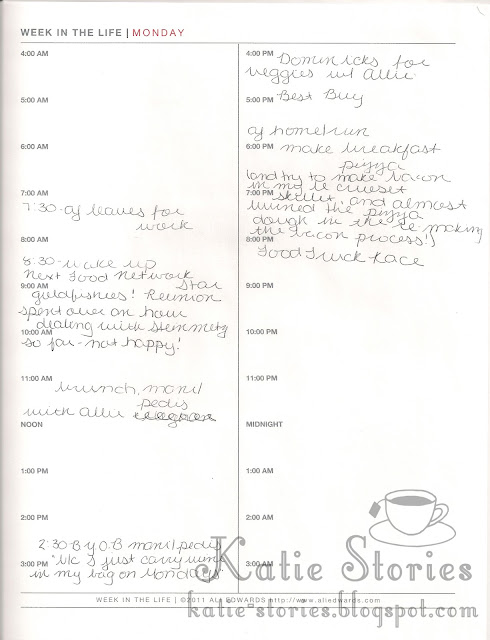 WEEK IN THE LIFE | MONDAY
4:00 AM
5:00 AM
6:00 AM
7:00 AM
7:30 - aj leaves for
work
8:00 AM
8:30 - wake up
Next Food Network
Star
9:00 AM
goldfishies! Reunion
spent over an hour
dealing with Steinmetz
10:00 AM
so far - not happy!
11:00 AM
brunch, mani/
pedis
with allie
NOON
1:00 PM
2:00 PM
2:30 - B y O.B mani/pedis
3:00 PM
"b/c I just carry wine
in my bag on Mondays"
4:00 PM
Dominicks for
veggies w/ Allie
5:00 PM
Best Buy
aj home/run
6:00 PM
make breakfast
pizza
(and try to make bacon
in my le crueset
7:00 PM
skillet, and almost
ruined the pizza
dough in the re-making
the bacon process!)
8:00 PM
Food Truck Race
9:00 PM
10:00 PM
11:00 PM
MIDNIGHT
1:00 AM
2:00 AM
3:00 AM
Katie Stories
katie-stories.blogspot.com
WEEK IN THE LIFE | ©2011 ALI EDWARDS http://www.aliedwards.com